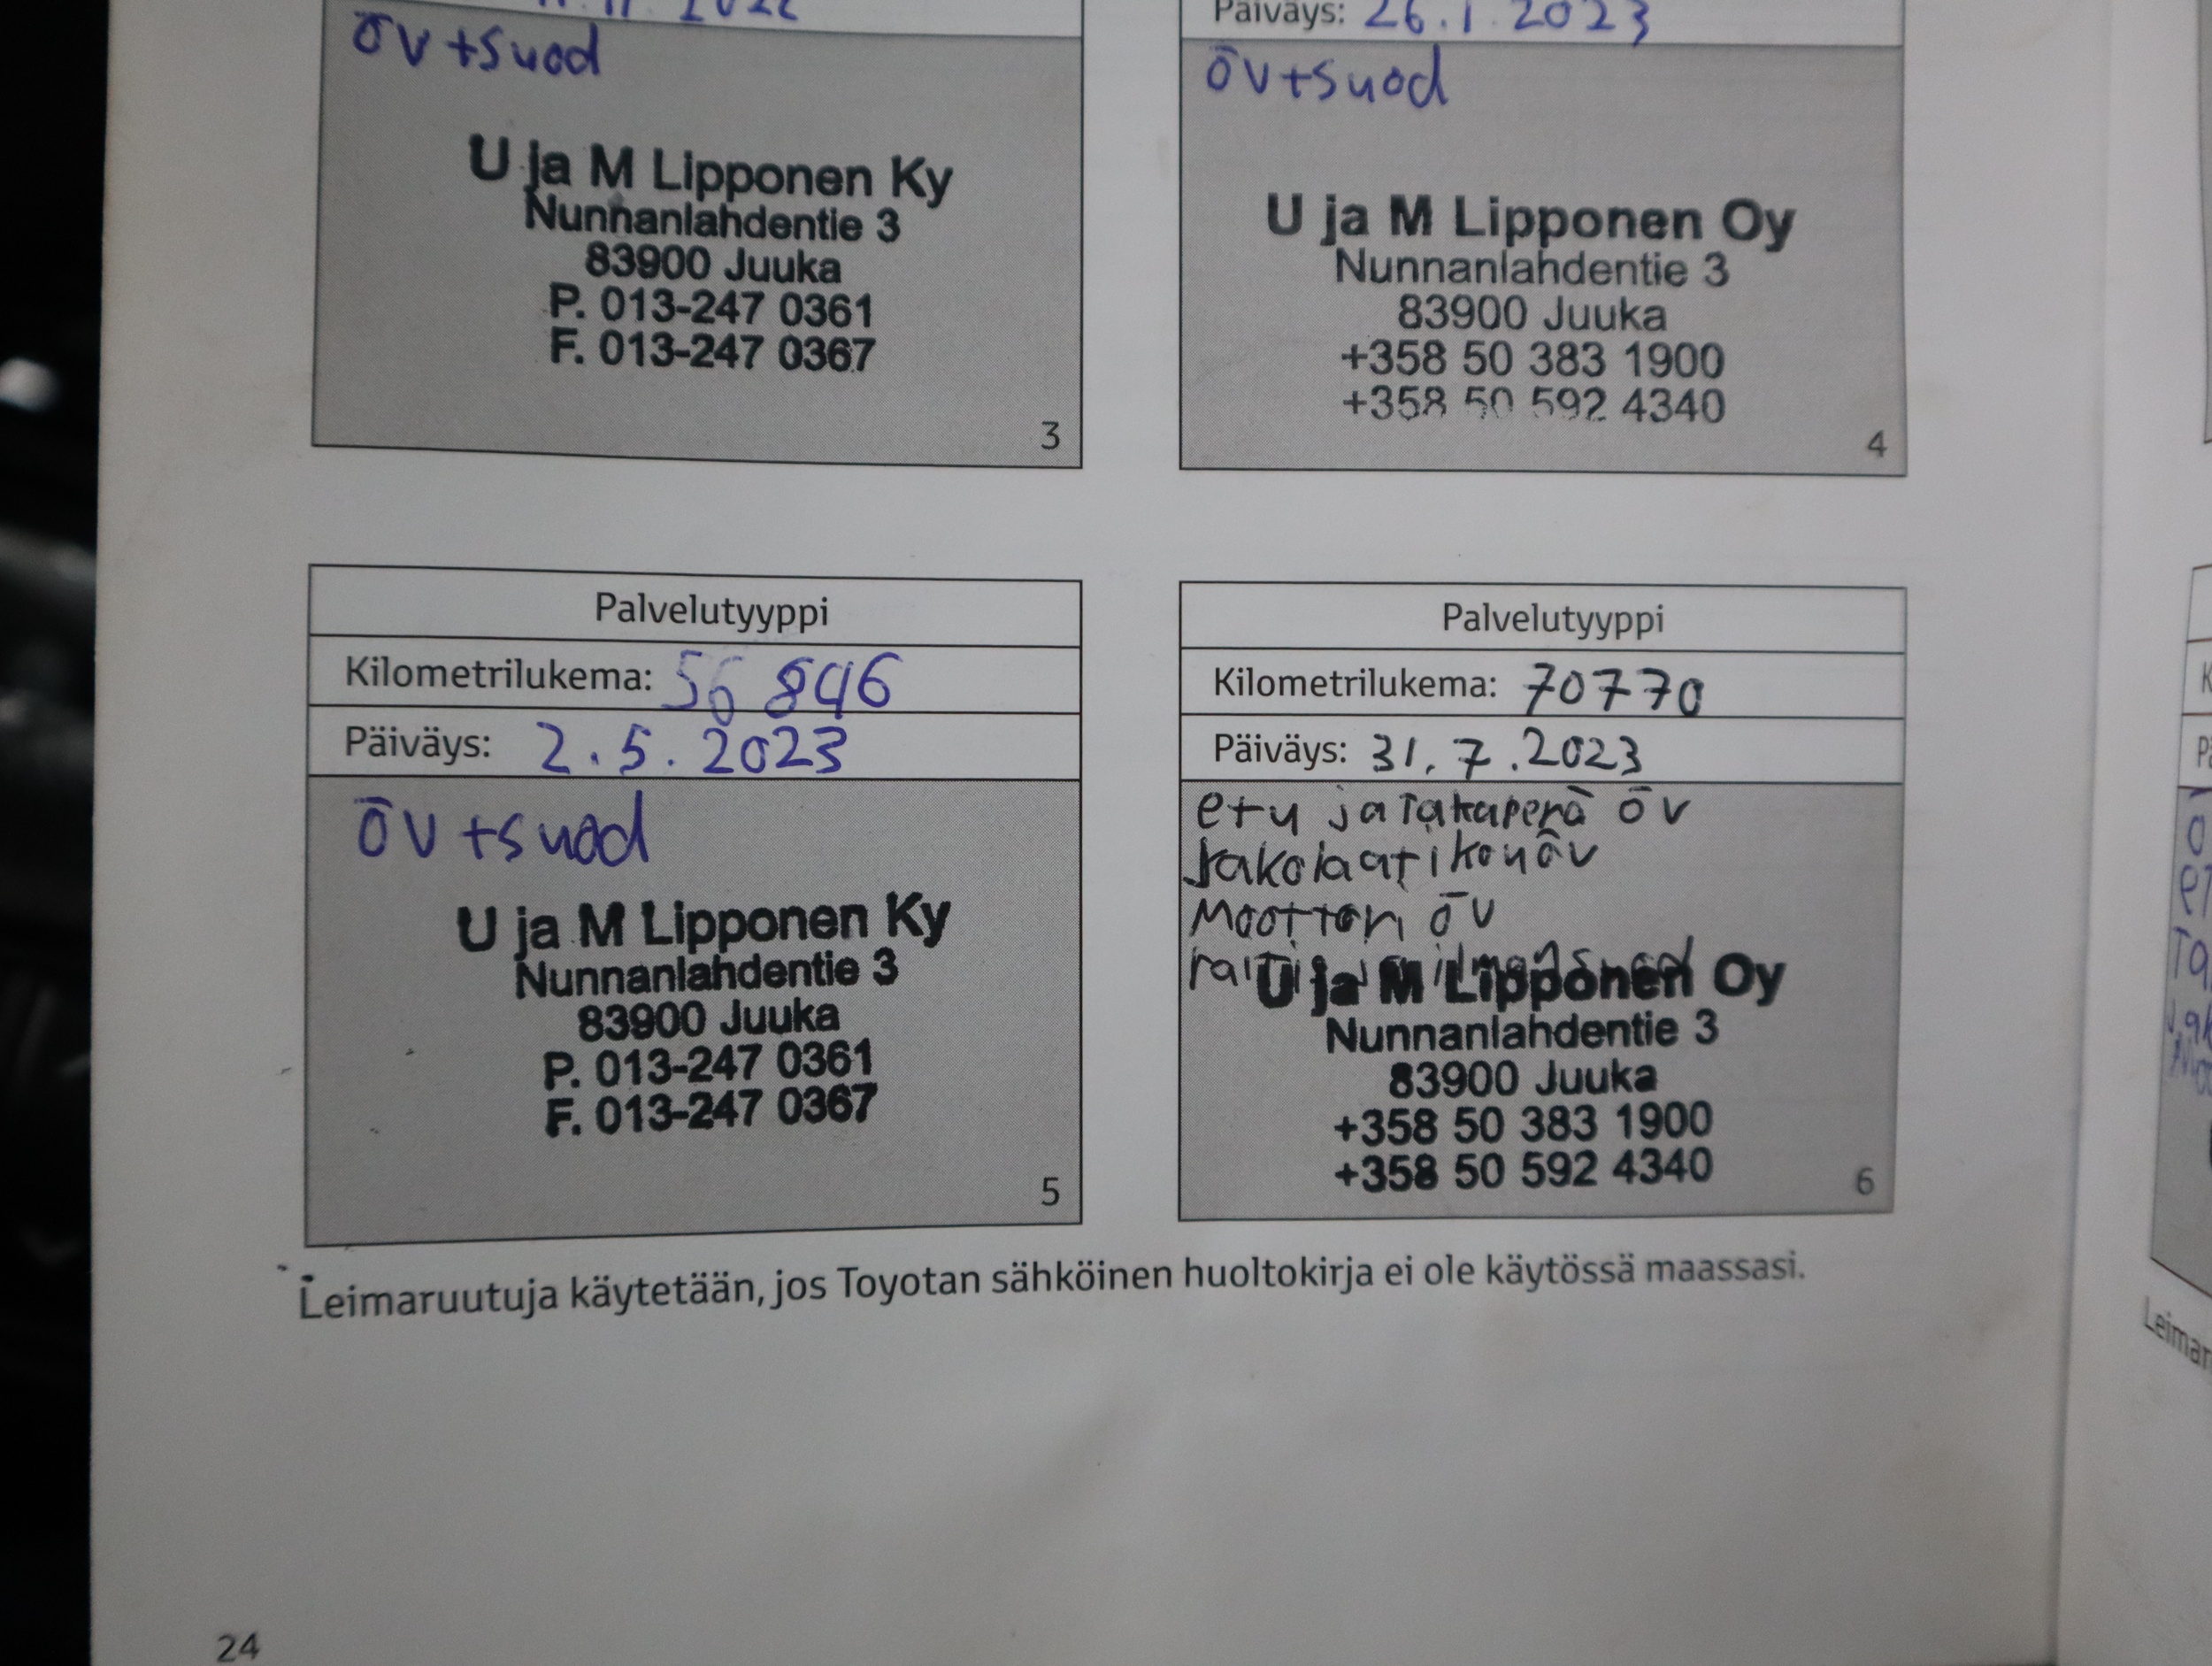 2022
öv+suod
U ja M Lipponen Ky
Nunnanlahdentie 3
83900 Juuka
P. 013-247 0361
F. 013-247 0367
3
Päiväys: 26.1.2023
öv+suod
U ja M Lipponen Oy
Nunnanlahdentie 3
83900 Juuka
+358 50 383 1900
+358 50 592 4340
4
Palvelutyyppi
Kilometrilukema: 56 846
Päiväys: 2.5.2023
öv+suod
U ja M Lipponen Ky
Nunnanlahdentie 3
83900 Juuka
P. 013-247 0361
F. 013-247 0367
5
Palvelutyyppi
Kilometrilukema: 70770
Päiväys: 31.7.2023
etu ja takaperä öv
Jakolaatikon öv
Moottori öv
U ja M Lipponen Oy
Nunnanlahdentie 3
83900 Juuka
+358 50 383 1900
+358 50 592 4340
6
Leimaruutuja käytetään, jos Toyotan sähköinen huoltokirja ei ole käytössä maassasi.
24